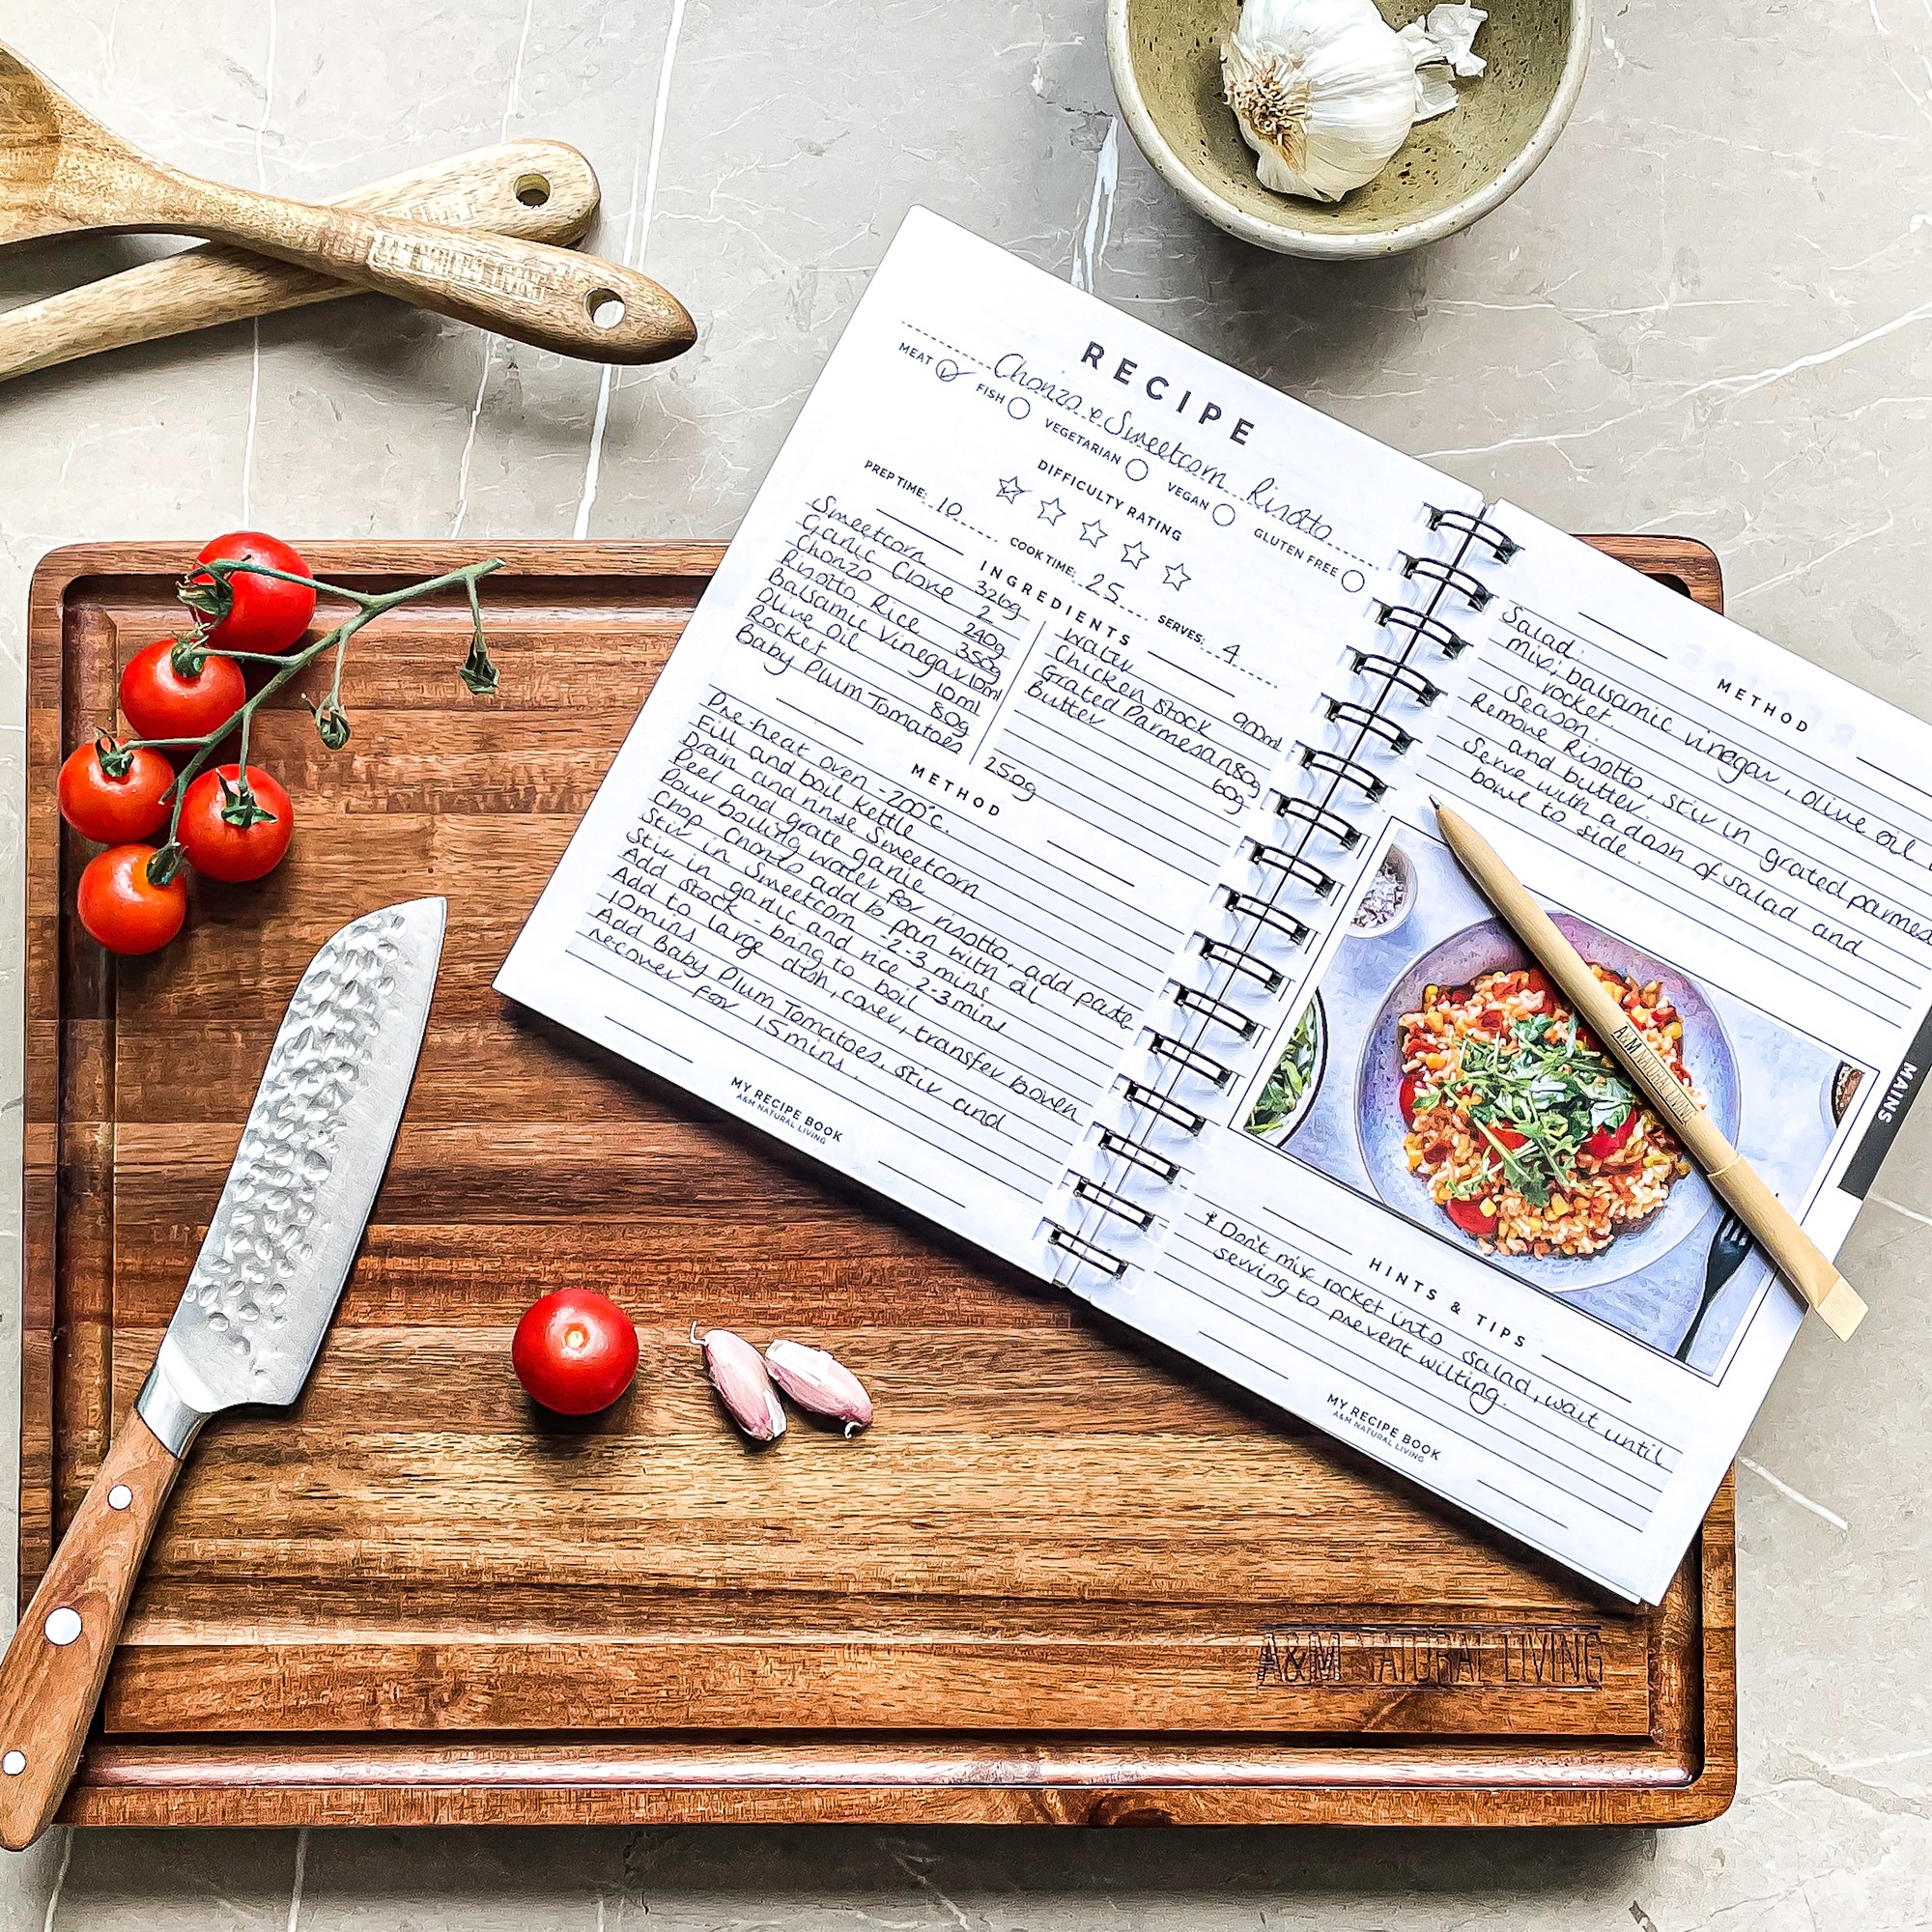 RECIPE
Chorizo & Sweetcorn Risotto
MEAT FISH VEGETARIAN VEGAN GLUTEN FREE
DIFFICULTY RATING
PREP TIME: 10 COOK TIME: 25 SERVES: 4
INGREDIENTS
Sweetcorn 326g
Garlic Clove 2
Chorizo 240g
Risotto Rice 350g
Balsamic Vinegar 10ml
Olive Oil 10ml
Rocket 80g
Baby Plum Tomatoes 250g
Water
Chicken Stock 900ml
Grated Parmesan 80g
Butter 60g
METHOD
Pre-heat oven - 200°c.
Fill and boil kettle
Drain and rinse Sweetcorn
Peel and grate garlic
Pour boiling water for risotto, add paste
Chop Chorizo add to pan with oil
Stir in Sweetcorn - 2-3 mins
Stir in garlic and rice 2-3 mins
Add stock - bring to boil
Add to large dish, cover, transfer to oven
10 mins
Add Baby Plum Tomatoes, stir and
recover for 15 mins.
MY RECIPE BOOK
A&M NATURAL LIVING
METHOD
Salad.
mix; balsamic vinegar, olive oil
rocket.
Season.
Remove Risotto, stir in grated parmes
and butter.
Serve with a dash of salad and
bowl to side.
MAINS
A&M NATURAL LIVING
HINTS & TIPS
* Don't mix rocket into salad, wait until
serving to prevent wilting.
MY RECIPE BOOK
A&M NATURAL LIVING
A&M NATURAL LIVING